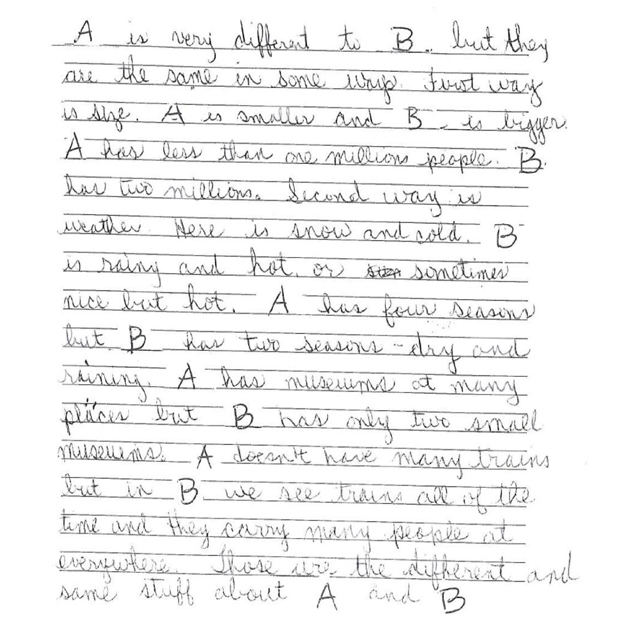 A is very different to B. but they
are the same in some ways. First way
is size. A is smaller and B is bigger.
A has less than one millions people. B
has two millions. Second way is
weather. Here is snow and cold. B
is rainy and hot. or sometimes
nice but hot. A has four seasons
but B has two seasons - dry and
raining. A has museums at many
places but B has only two small
museums. A doesn't have many trains
but in B we see trains all of the
time and they carry many people at
everywhere. Those are the different and
same stuff about A and B